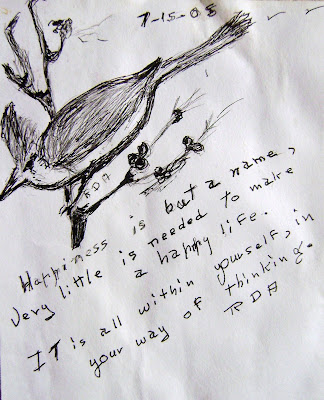 7-15-08
RDA
Happiness is but a name,
very little is needed to make
a happy life.
IT is all within yourself, in
your way of thinking.
RDA